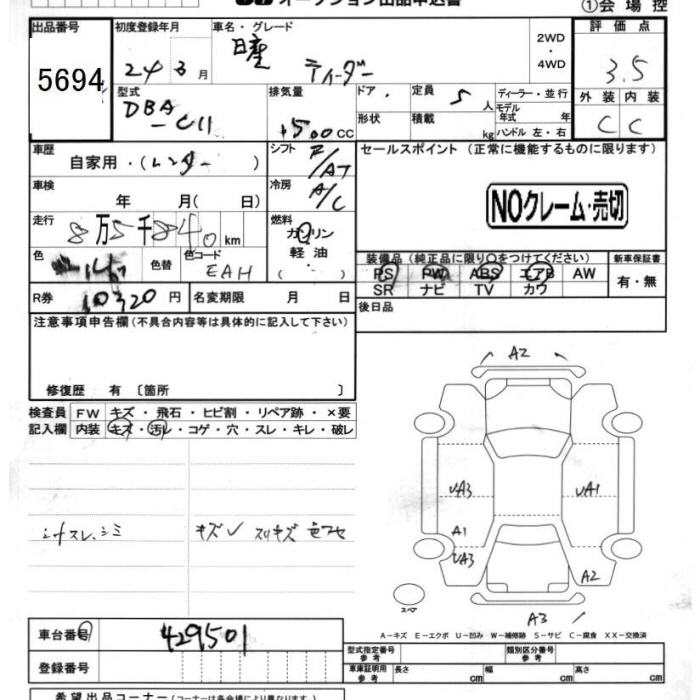 オークション出品申込書
①会場控
出品番号 初度登録年月 車名・グレード 2WD ・ 4WD 評価点
5694 24 3月 日産 ティーダ 3.5
型式 排気量 ドア・ 定員 5人 ディーラー・並行
DBA-C11 1500cc 形状 積載 kg モデル年式 年 ハンドル 左・右
外装 内装
C C
車歴 自家用・(レンター) シフト F/AT セールスポイント (正常に機能するものに限ります)
車検 年 月(日) 冷房 A/C
NOクレーム・売切
走行 8万5千840km 燃料 ガソリン 軽油 ( )
色 色替 色コード EAH
装備品(純正品に限り○をつけてください) 新車保証書
PS PW ABS エアB AW 有・無
SR ナビ TV カワ
R券 10320円 名変期限 月 日 後日品
注意事項申告欄(不具合内容等は具体的に記入して下さい)
修復歴 有 〔箇所 〕
検査員 FW キズ・飛石・ヒビ割・リペア跡・×要
記入欄 内装 キズ・汚レ・コゲ・穴・スレ・キレ・破レ
シートスレ、シミ キズU スリキズ 色アセ
A2
UA3 UA1
A1
UA3
A2
スペア
A3
A-キズ E-エクボ U-凹み W-補修跡 S-サビ C-腐食 XX-交換済
車台番号 429501
登録番号
型式指定番号 参考 類別区分番号 参考
車庫証明用 参考 長さ cm 幅 cm 高さ cm
希望出品コーナー(コーナーは各会場により異なります)